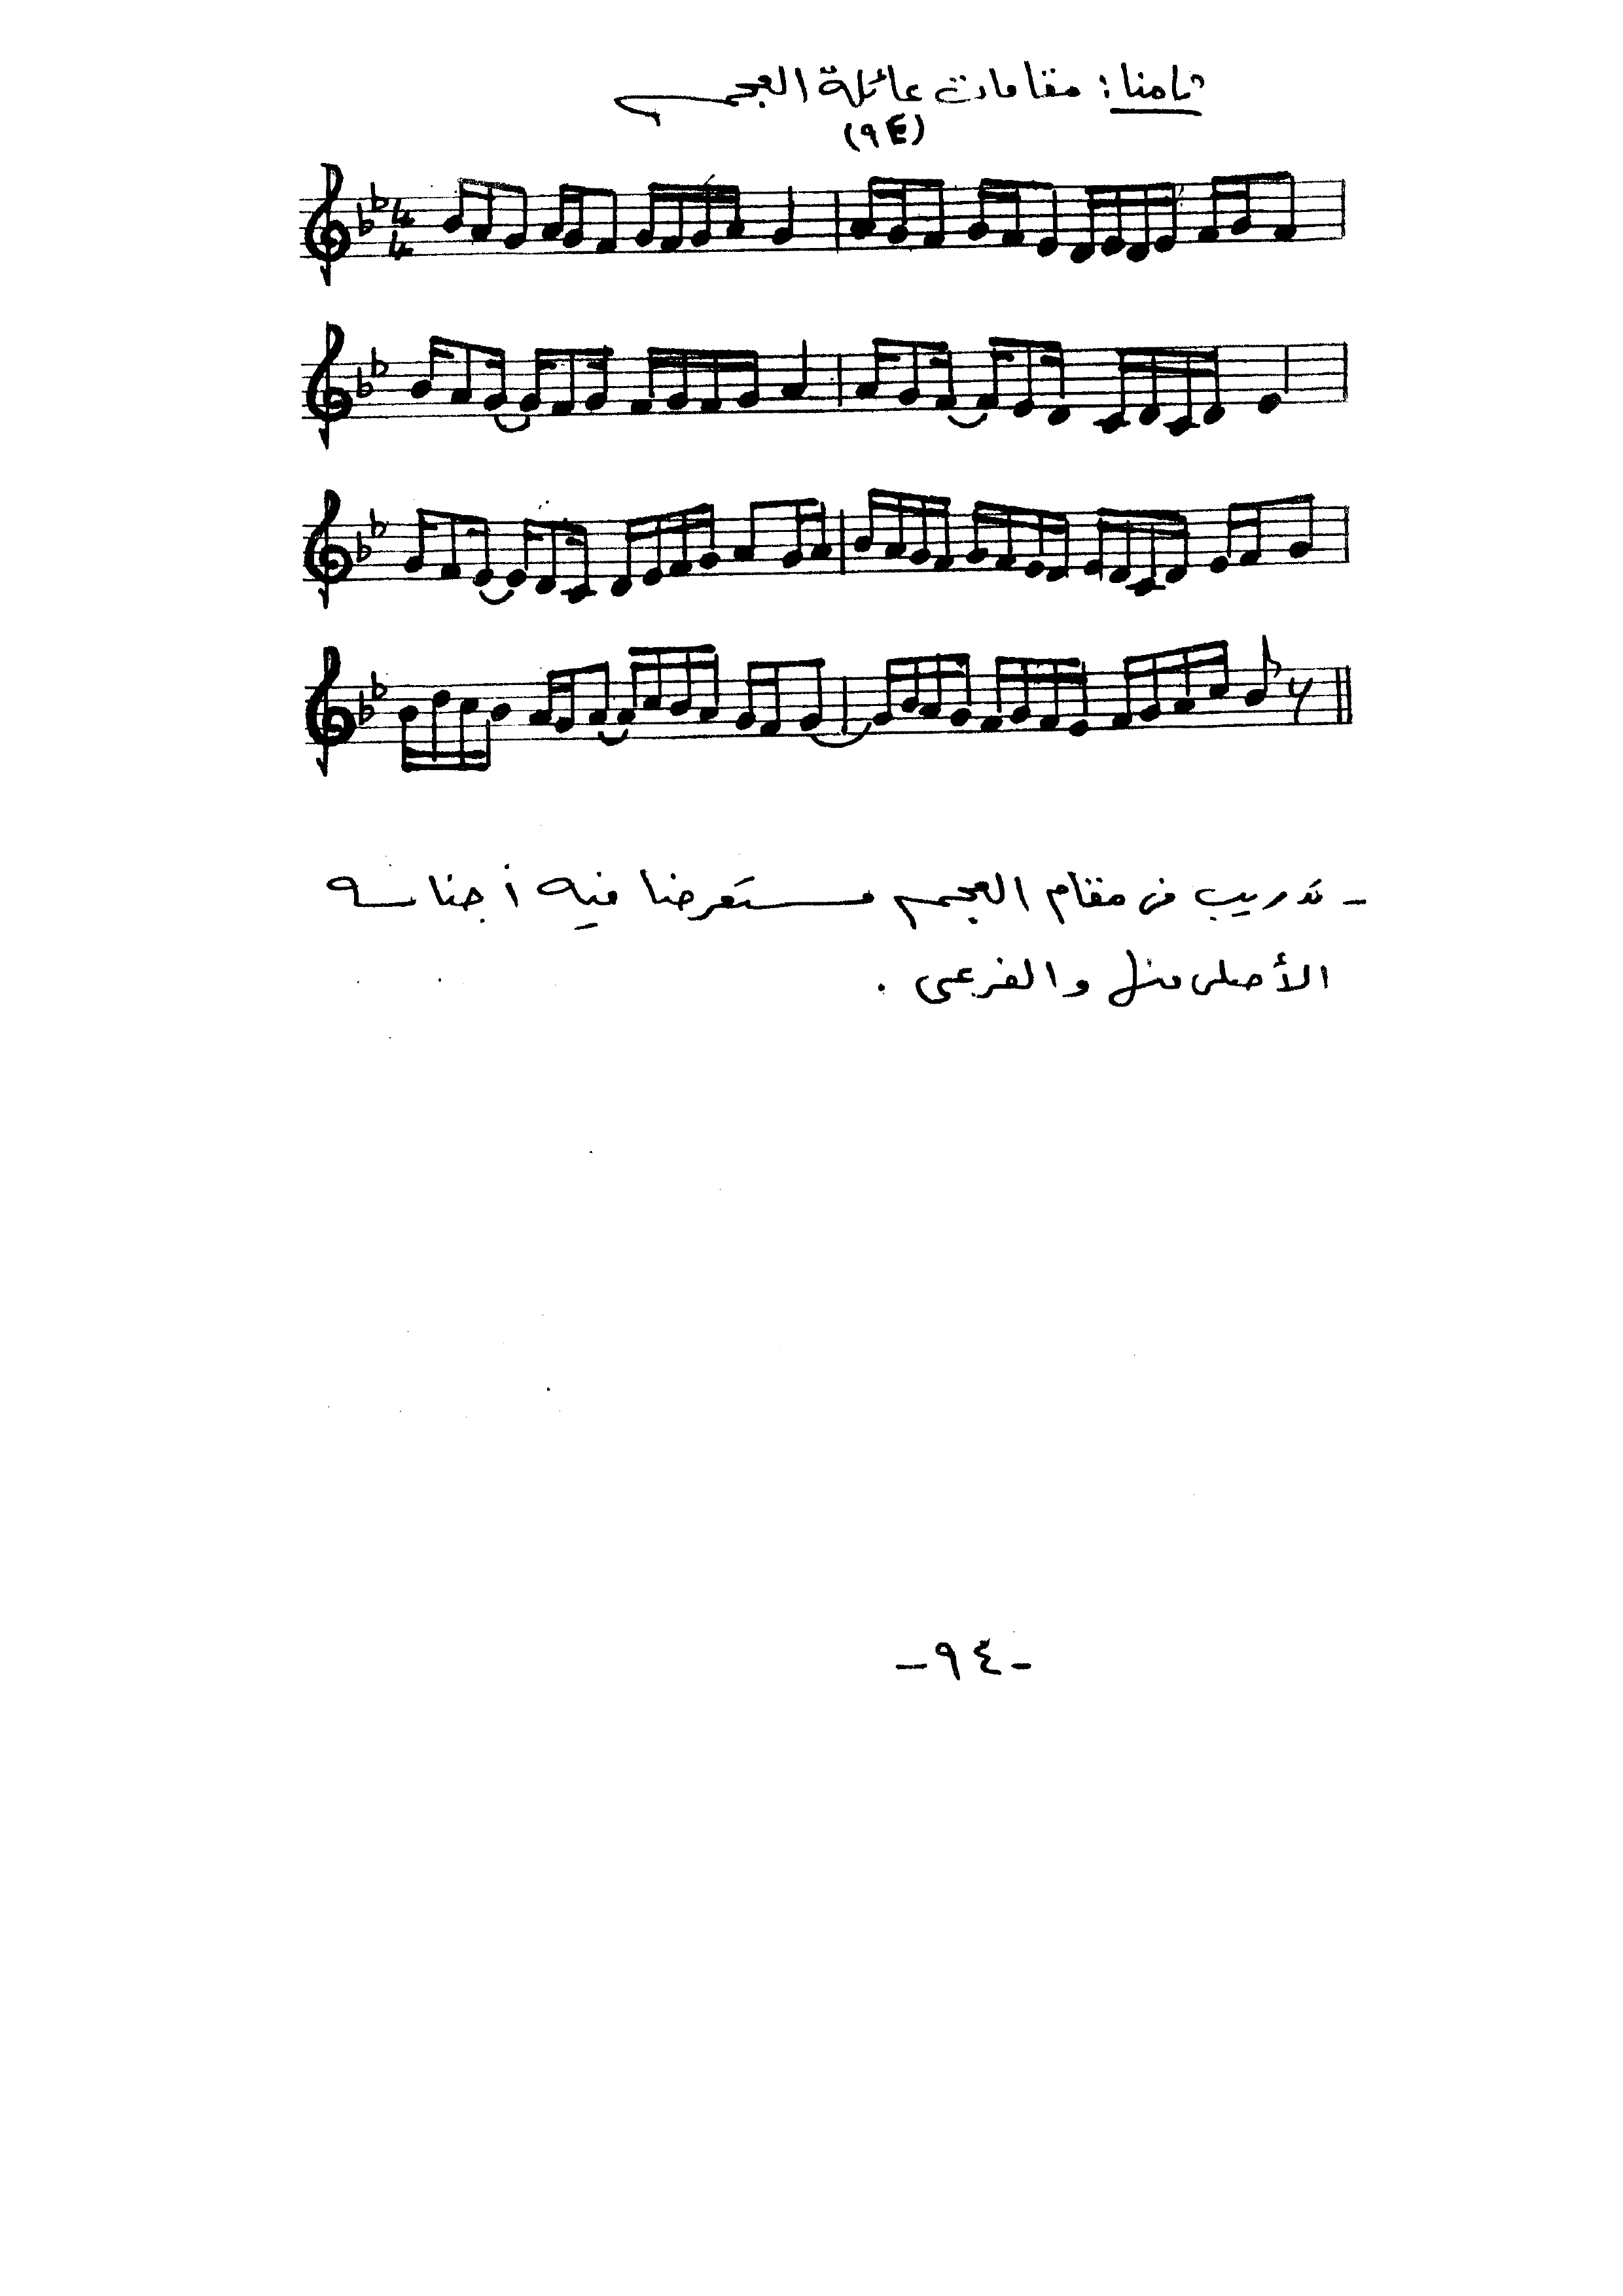 ثامنا: مقامات عائلة العجم
(٩٤)
4
4
- تدريب من مقام العجم مستعرضا فيه أجناسه
الأصلى منها والفرعى .
-٩٤-